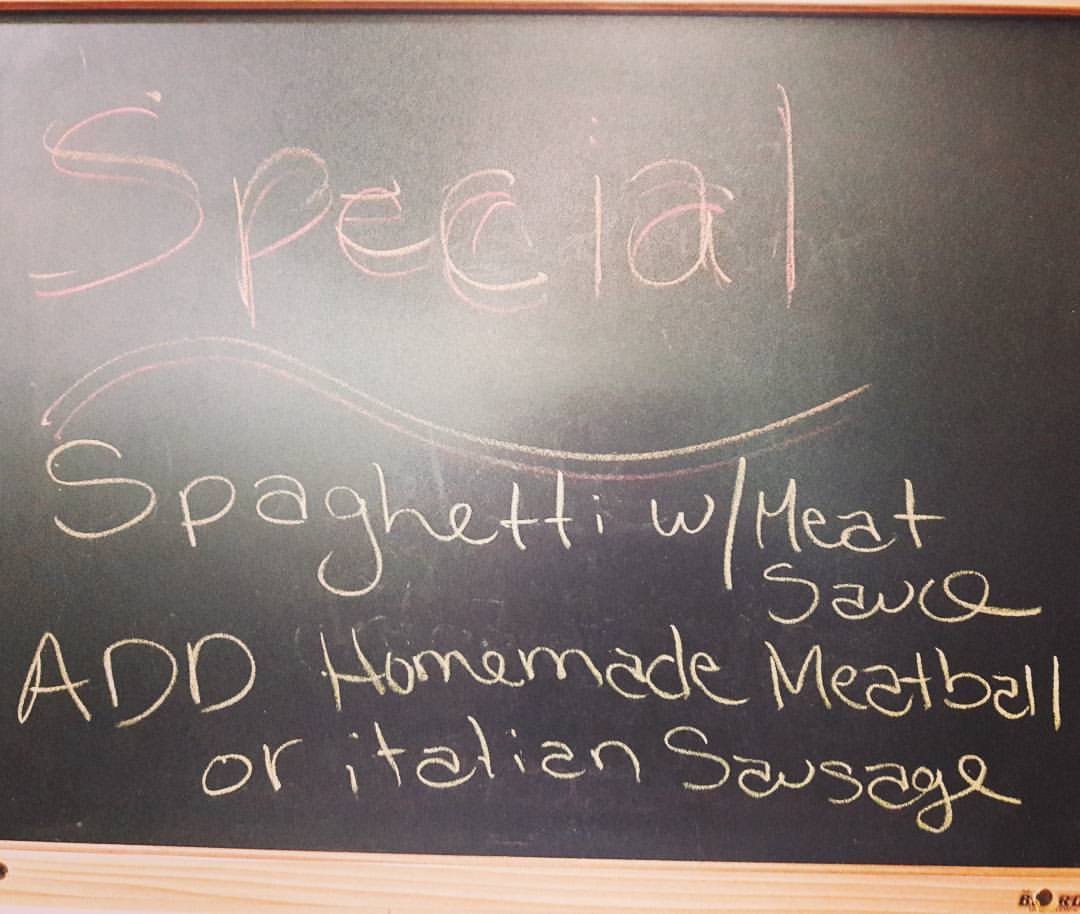 Special
Spaghetti w/Meat
Sauce
ADD Homemade Meatball
or italian Sausage